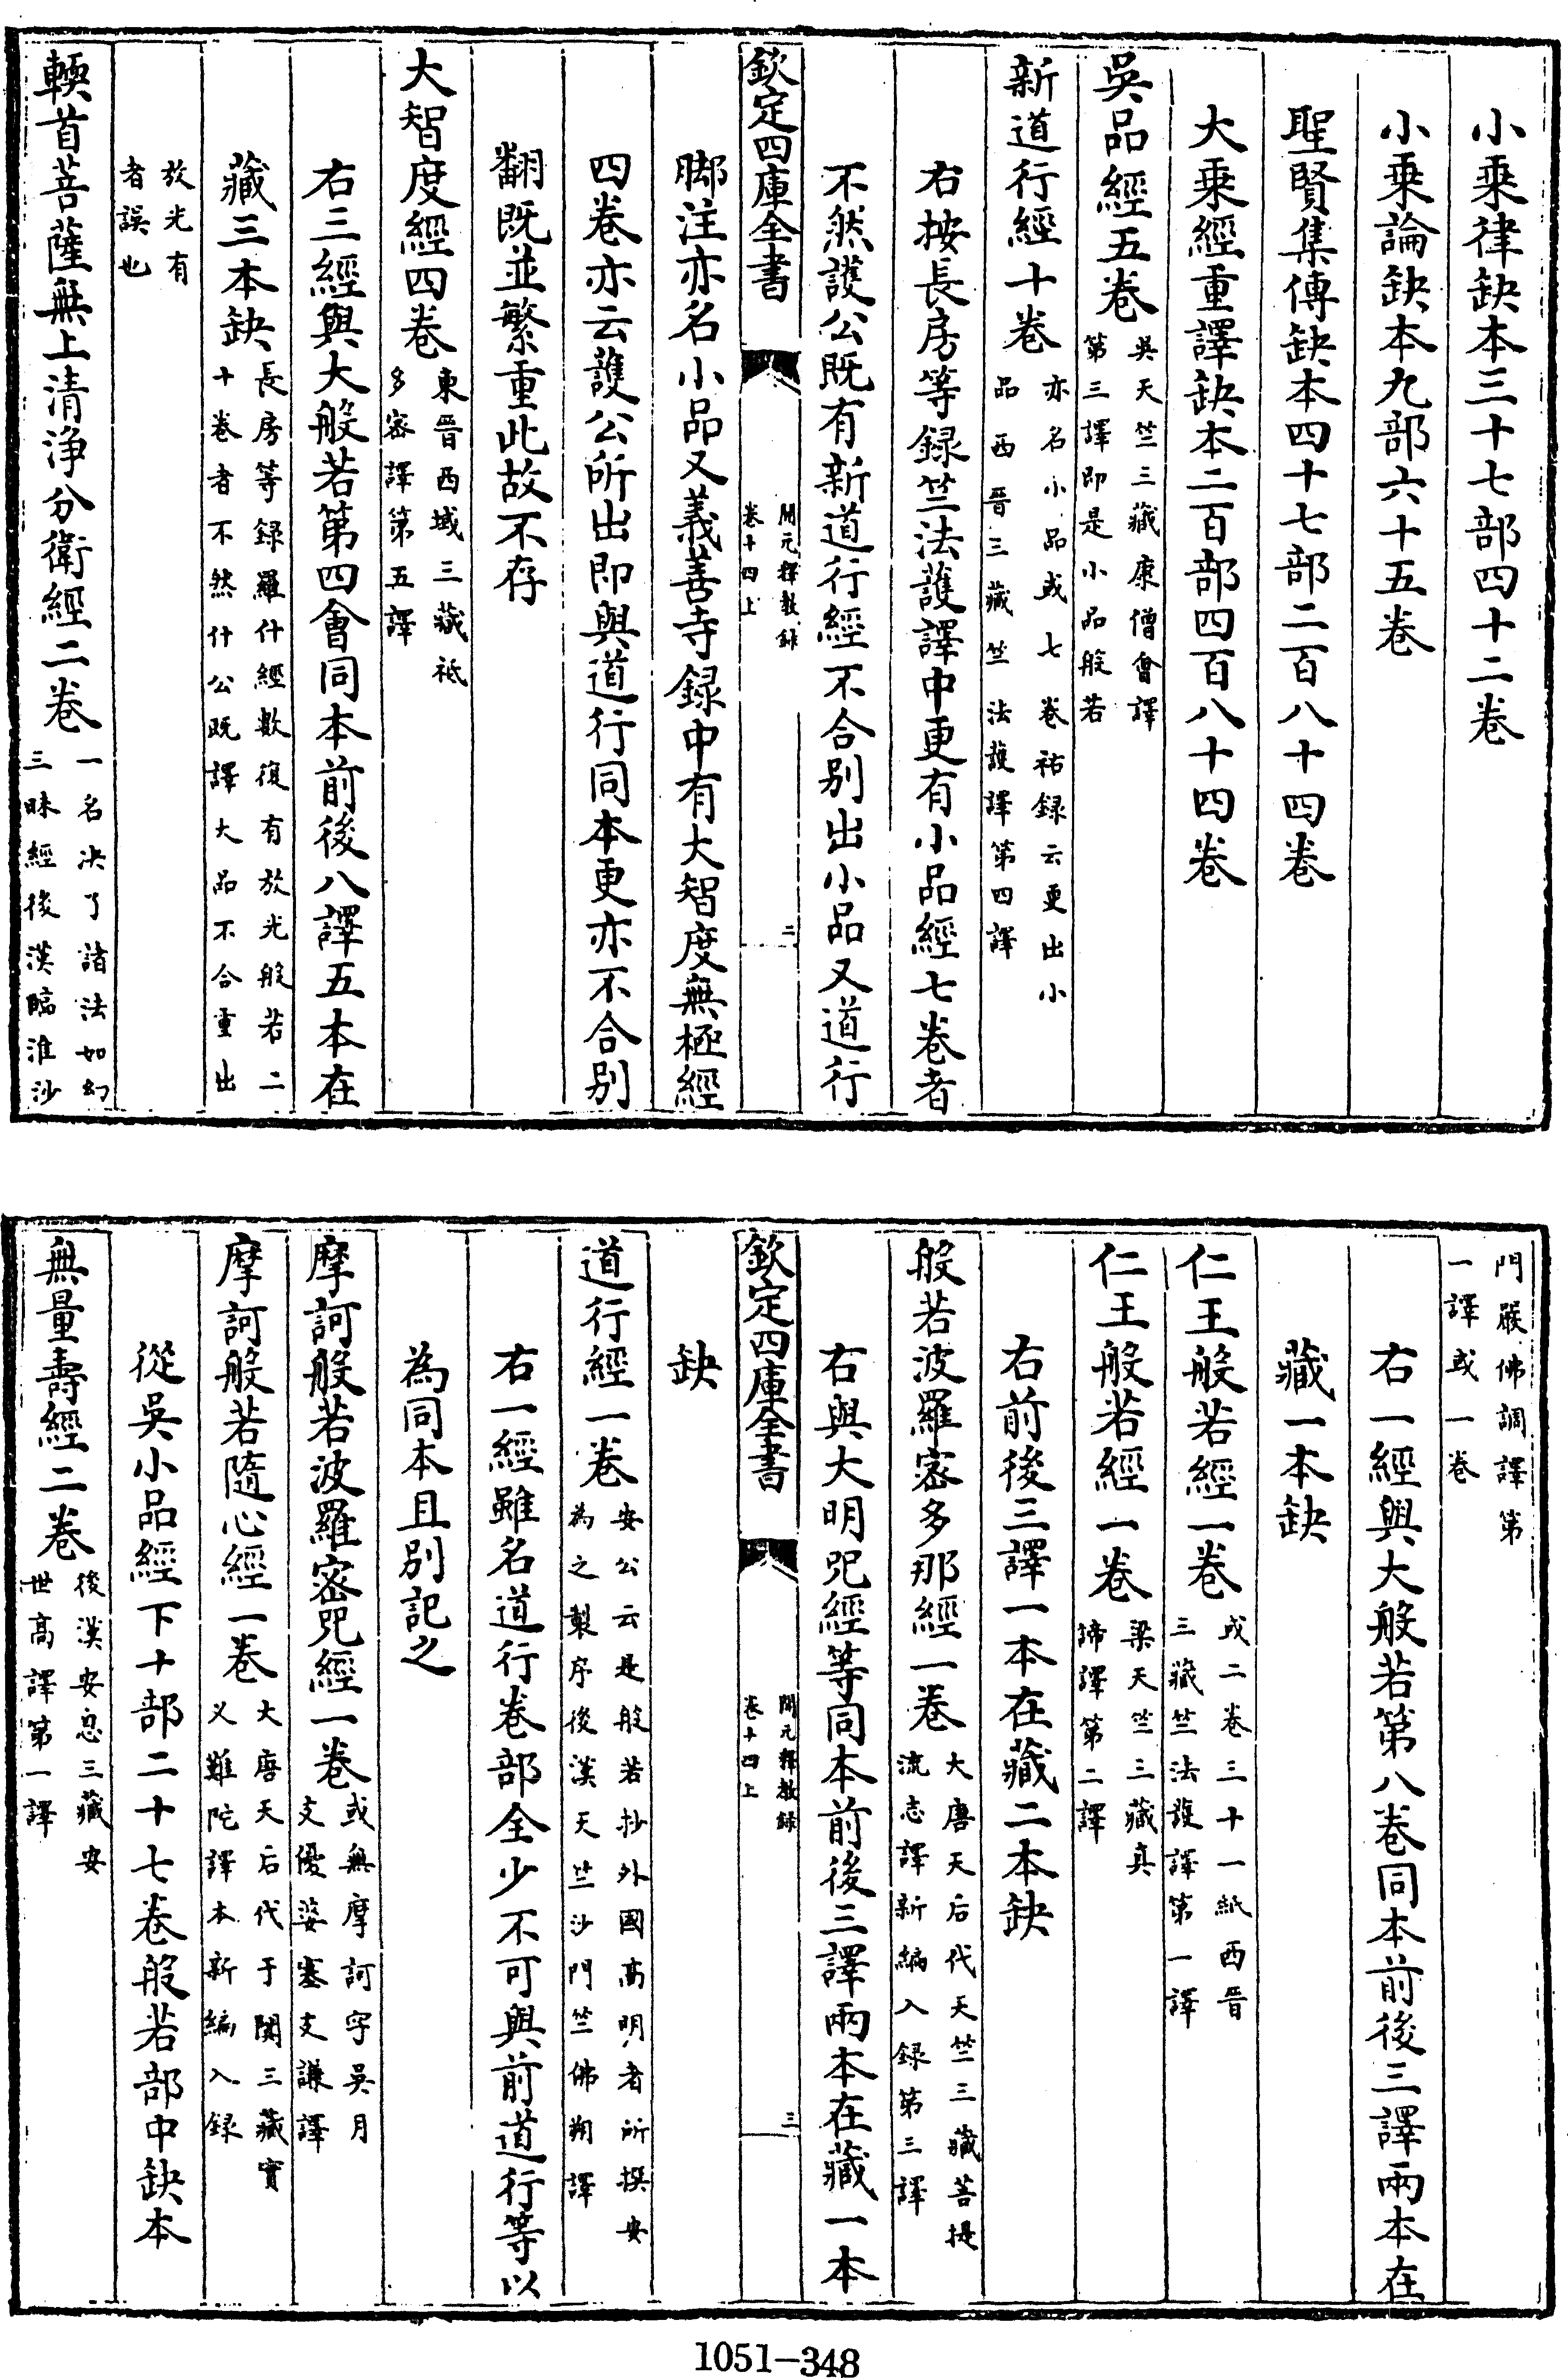 小乘律缺本三十七部四十二卷
小乘論缺本九部六十五卷
聖賢集傳缺本四十七部二百八十四卷
大乘經重譯缺本二百部四百八十四卷
吳品經五卷吳天竺三藏康僧會譯第三譯即是小品般若
新道行經十卷亦名小品或七卷祐録云更出小品西晉三藏竺法護譯第四譯
右按長房等録竺法護譯中更有小品經七卷者
不然護公既有新道行經不合别出小品又道行
欽定四庫全書 開元釋教録卷十四上 二
脚注亦名小品又義善寺録中有大智度無極經
四卷亦云護公所出即與道行同本更亦不合别
翻既並繁重此故不存
大智度經四卷東晉西域三藏祗多宻譯第五譯
右三經與大般若第四會同本前後八譯五本在
藏三本缺長房等録羅什經數復有放光般若二十卷者不然什公既譯大品不合重出
放光有者誤也
輭首菩薩無上清淨分衛經二卷一名决了諸法如幻三昧經後漢臨淮沙
門嚴佛調譯第一譯或一卷
右一經與大般若第八卷同本前後三譯兩本在
藏一本缺
仁王般若經一卷或二卷三十一紙西晉三藏竺法護譯第一譯
仁王般若經一卷梁天竺三藏真諦譯第二譯
右前後三譯一本在藏二本缺
般若波羅宻多那經一卷大唐天后代天竺三藏菩提流志譯新編入録第三譯
右與大明咒經等同本前後三譯兩本在藏一本
欽定四庫全書 開元釋教録卷十四上 三
缺
道行經一卷安公云是般若抄外國高明者所撰安為之製序後漢天竺沙門竺佛朔譯
右一經雖名道行卷部全少不可與前道行等以
為同本且别記之
摩訶般若波羅宻咒經一卷或無摩訶字吳月支優婆塞支謙譯
摩訶般若隨心經一卷大唐天后代于闐三藏實义難陀譯本新編入録
從吳小品經下十部二十七卷般若部中缺本
無量壽經二卷後漢安息三藏安世高譯第一譯
1051-348